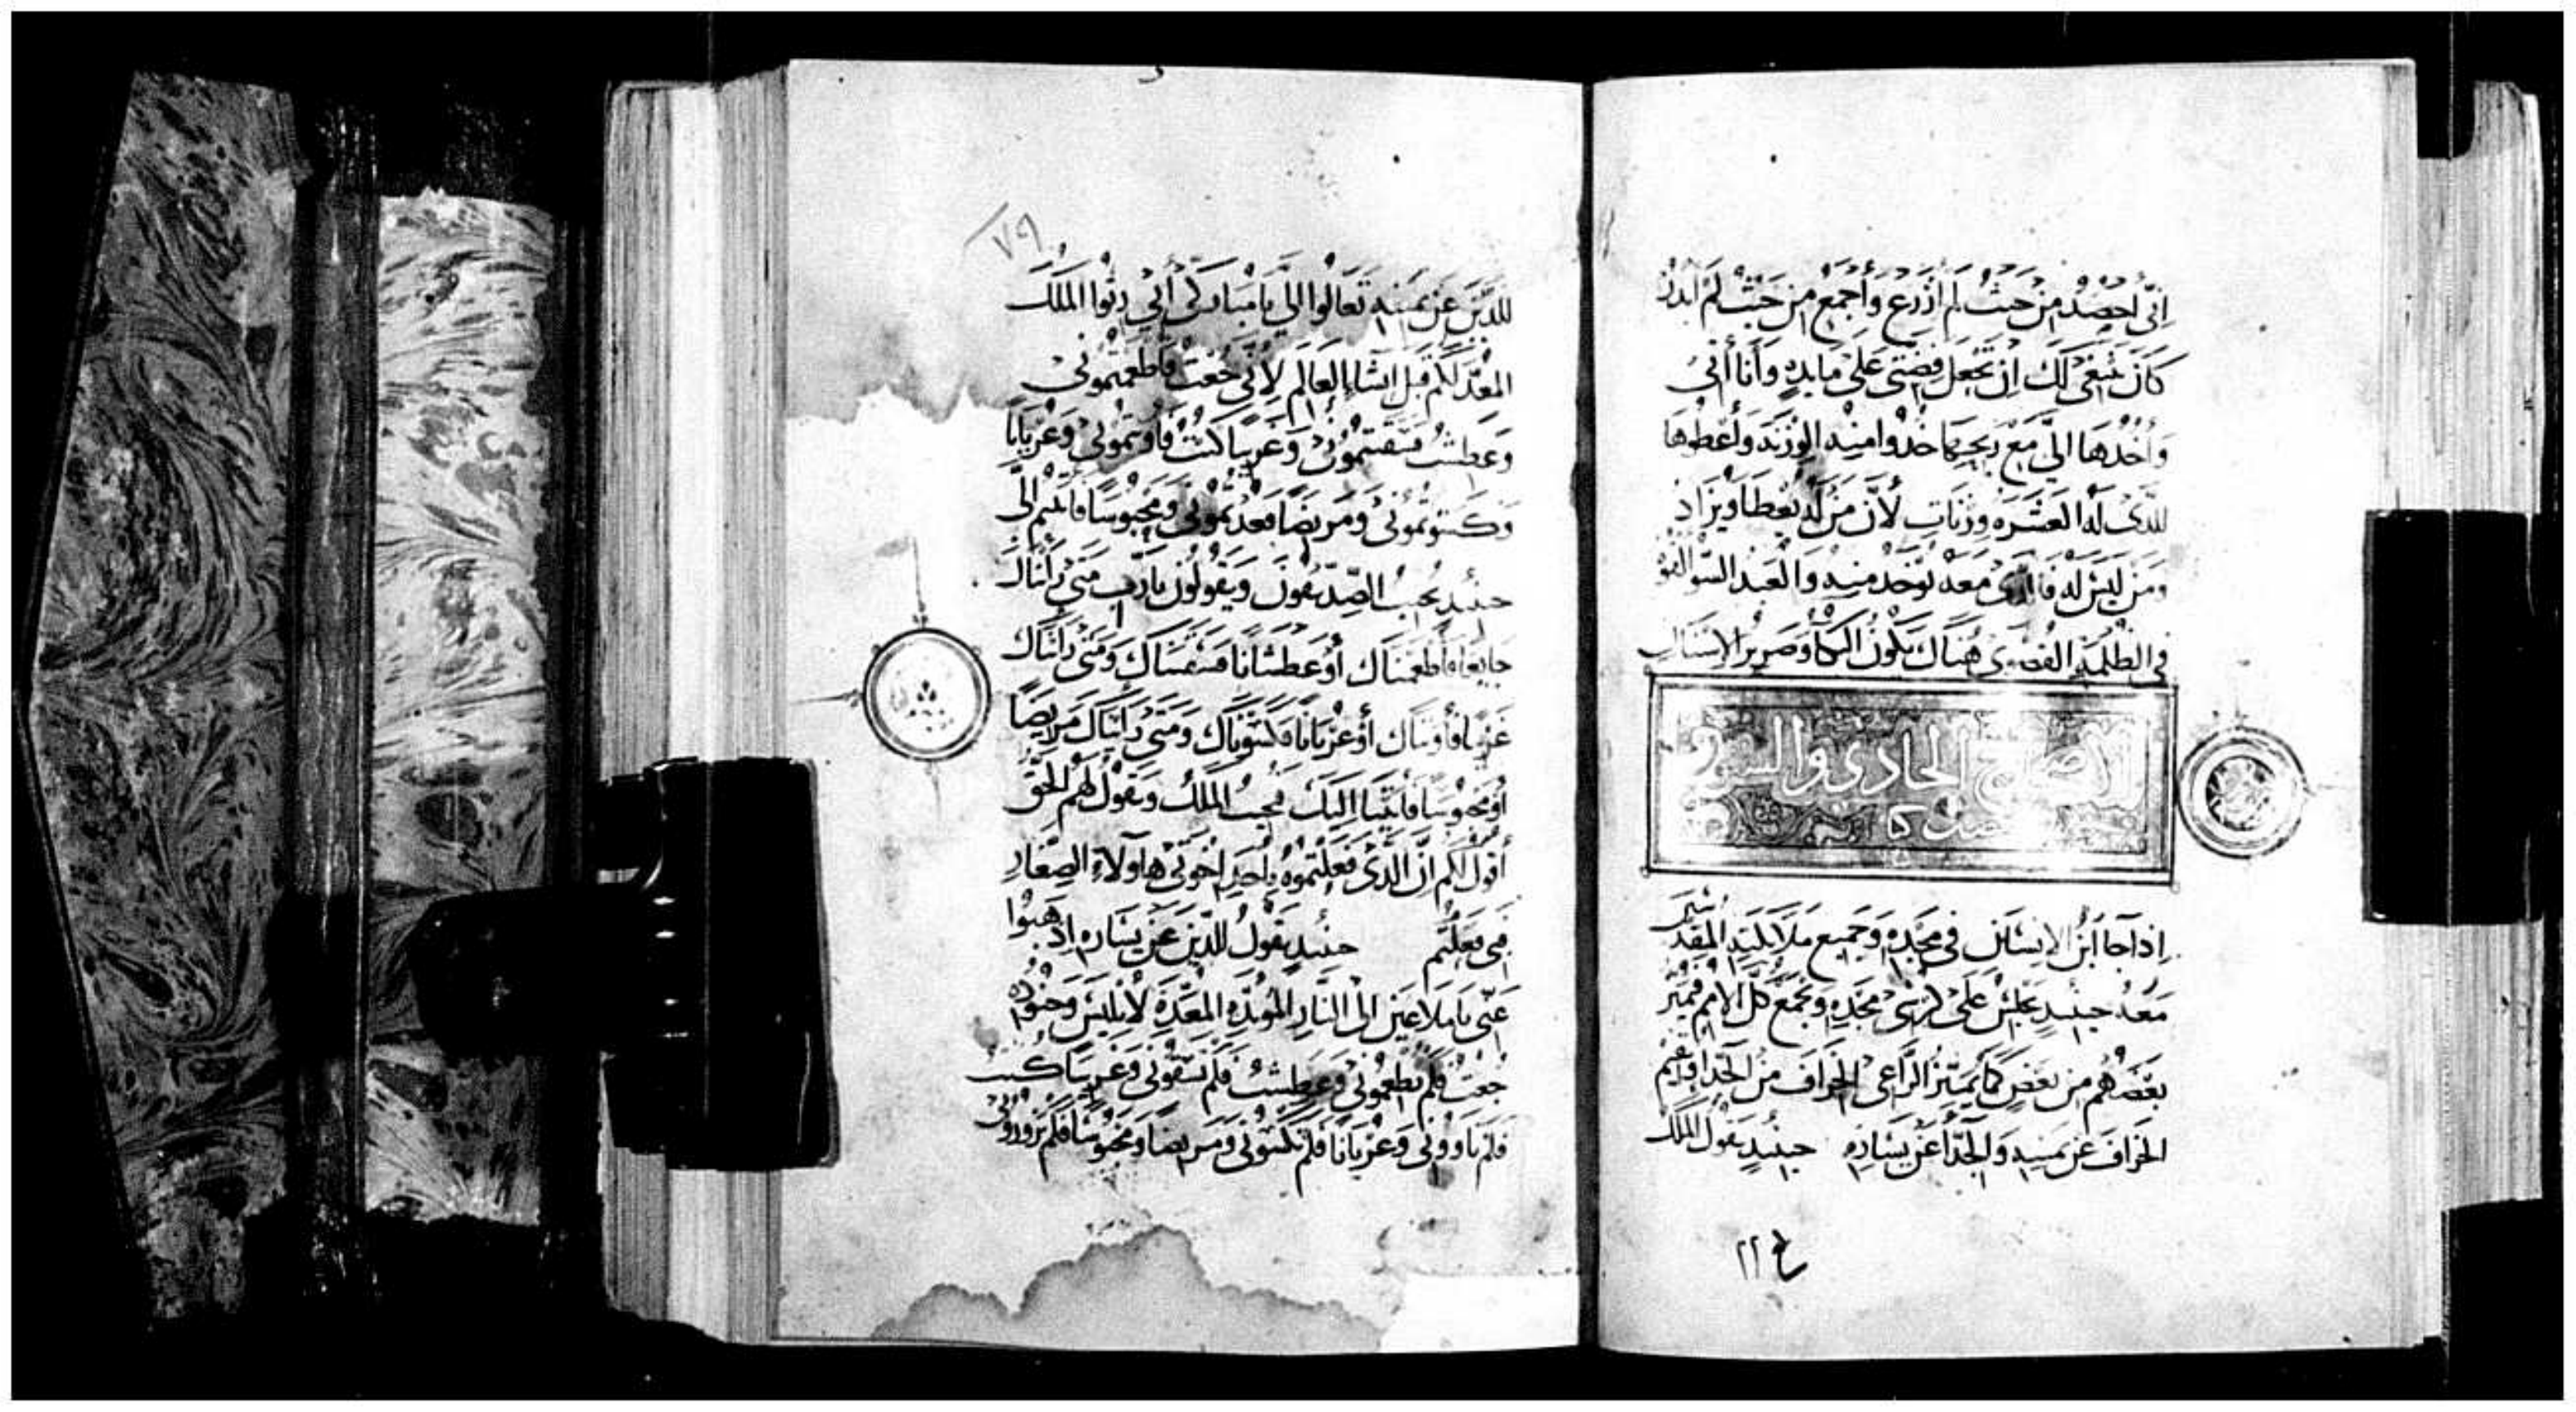 إنّي أحصُدُ من حَيثُ لم أزرَع وأجمَع من حَيثُ لم ابدُرْ
كانَ ينبغي لك ان تجعل فضتي على مايده وأنا أتي
وآخُذُها اليَّ مع ربحها خُذوا منه الوزنه وأعطوها
للذي له العَشَره وزنات لأن مَن لهُ يُعطا ويزاد
ومَن ليسَ له فالذي معه يُوخد منه والعبد السو القوهُ
في الظلمه القصوى هناك يكون البكاُ وصرير الاسنان
الاصحاح الحادي والستون
إذا جا ابن الانسان في مجدِه وجميع ملايكته المقدسين
معهُ حينيدٍ يجلسُ على كرسي مجدِه وتجمع كل الامم فيميز
بعضهم من بعضٍ كما يميّز الراعي الخراف من الجدا ويقيم
الخراف عن يمينه والجدا عن يساره حينيدٍ يقول الملك
ع ٢٢
٧٩
للذين عن يمينه تعالوا اليَّ يا مباركي أبي رثوا الملك
المعدّ لكم قبل انشا العالم لأني جُعت فاطعمتموني
وعطشتُ فسقيتموني وغريبًا كنتُ فاويتموني وعُريانًا
وكسوتموني ومريضًا فعدتموني ومحبوسًا فاتيتم الي
حينيدٍ يجيب الصدّيقون ويقولون يا رب متى رايناك
جايعًا فاطعمناك أو عطشانًا فسقيناك ومتى رايناك
غريبًا فأويناك أو عُريانًا فكسوناك ومتى رايناك مريضًا
أو محبوسًا فأتينا اليك فيجيبُ الملك ويقول لهم الحق
أقول لكم ان الذي فعلتموه بأحد اخوتي هاولاء الصغار
فبي فعلتم حينيدٍ يقولُ للذين عن يساره اذهبوا
عني يا ملاعين الى النار الموبده المعدّة لابليس وجنوده
جُعتُ فلم تطعموني وعطشتُ فلم تسقوني وغريبًا كنت
فلم تاووني وعريانًا فلم تكسوني ومريضًا ومحبوسًا فلم تزوروني